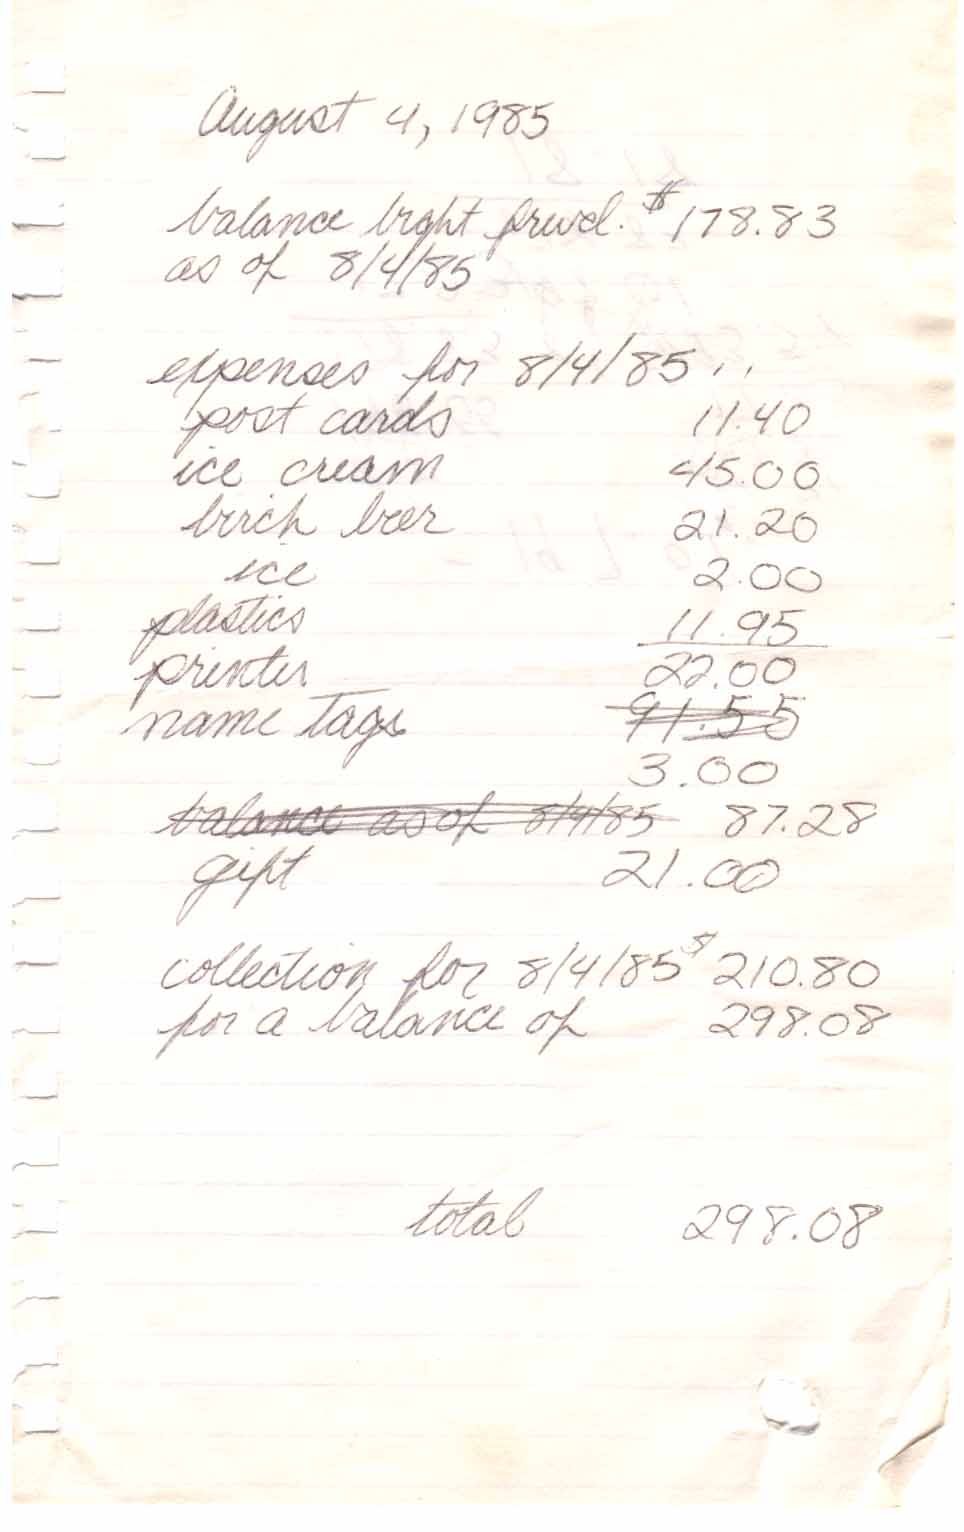 August 4, 1985
balance brght frwd. $178.83
as of 8/4/85
expenses for 8/4/85..
post cards 11.40
ice cream 45.00
birch beer 21.20
ice 2.00
plastics 11.95
printer 22.00
name tags 91.55
3.00
balance as of 8/4/85 87.28
gift 21.00
collection for 8/4/85 $210.80
for a balance of 298.08
total 298.08